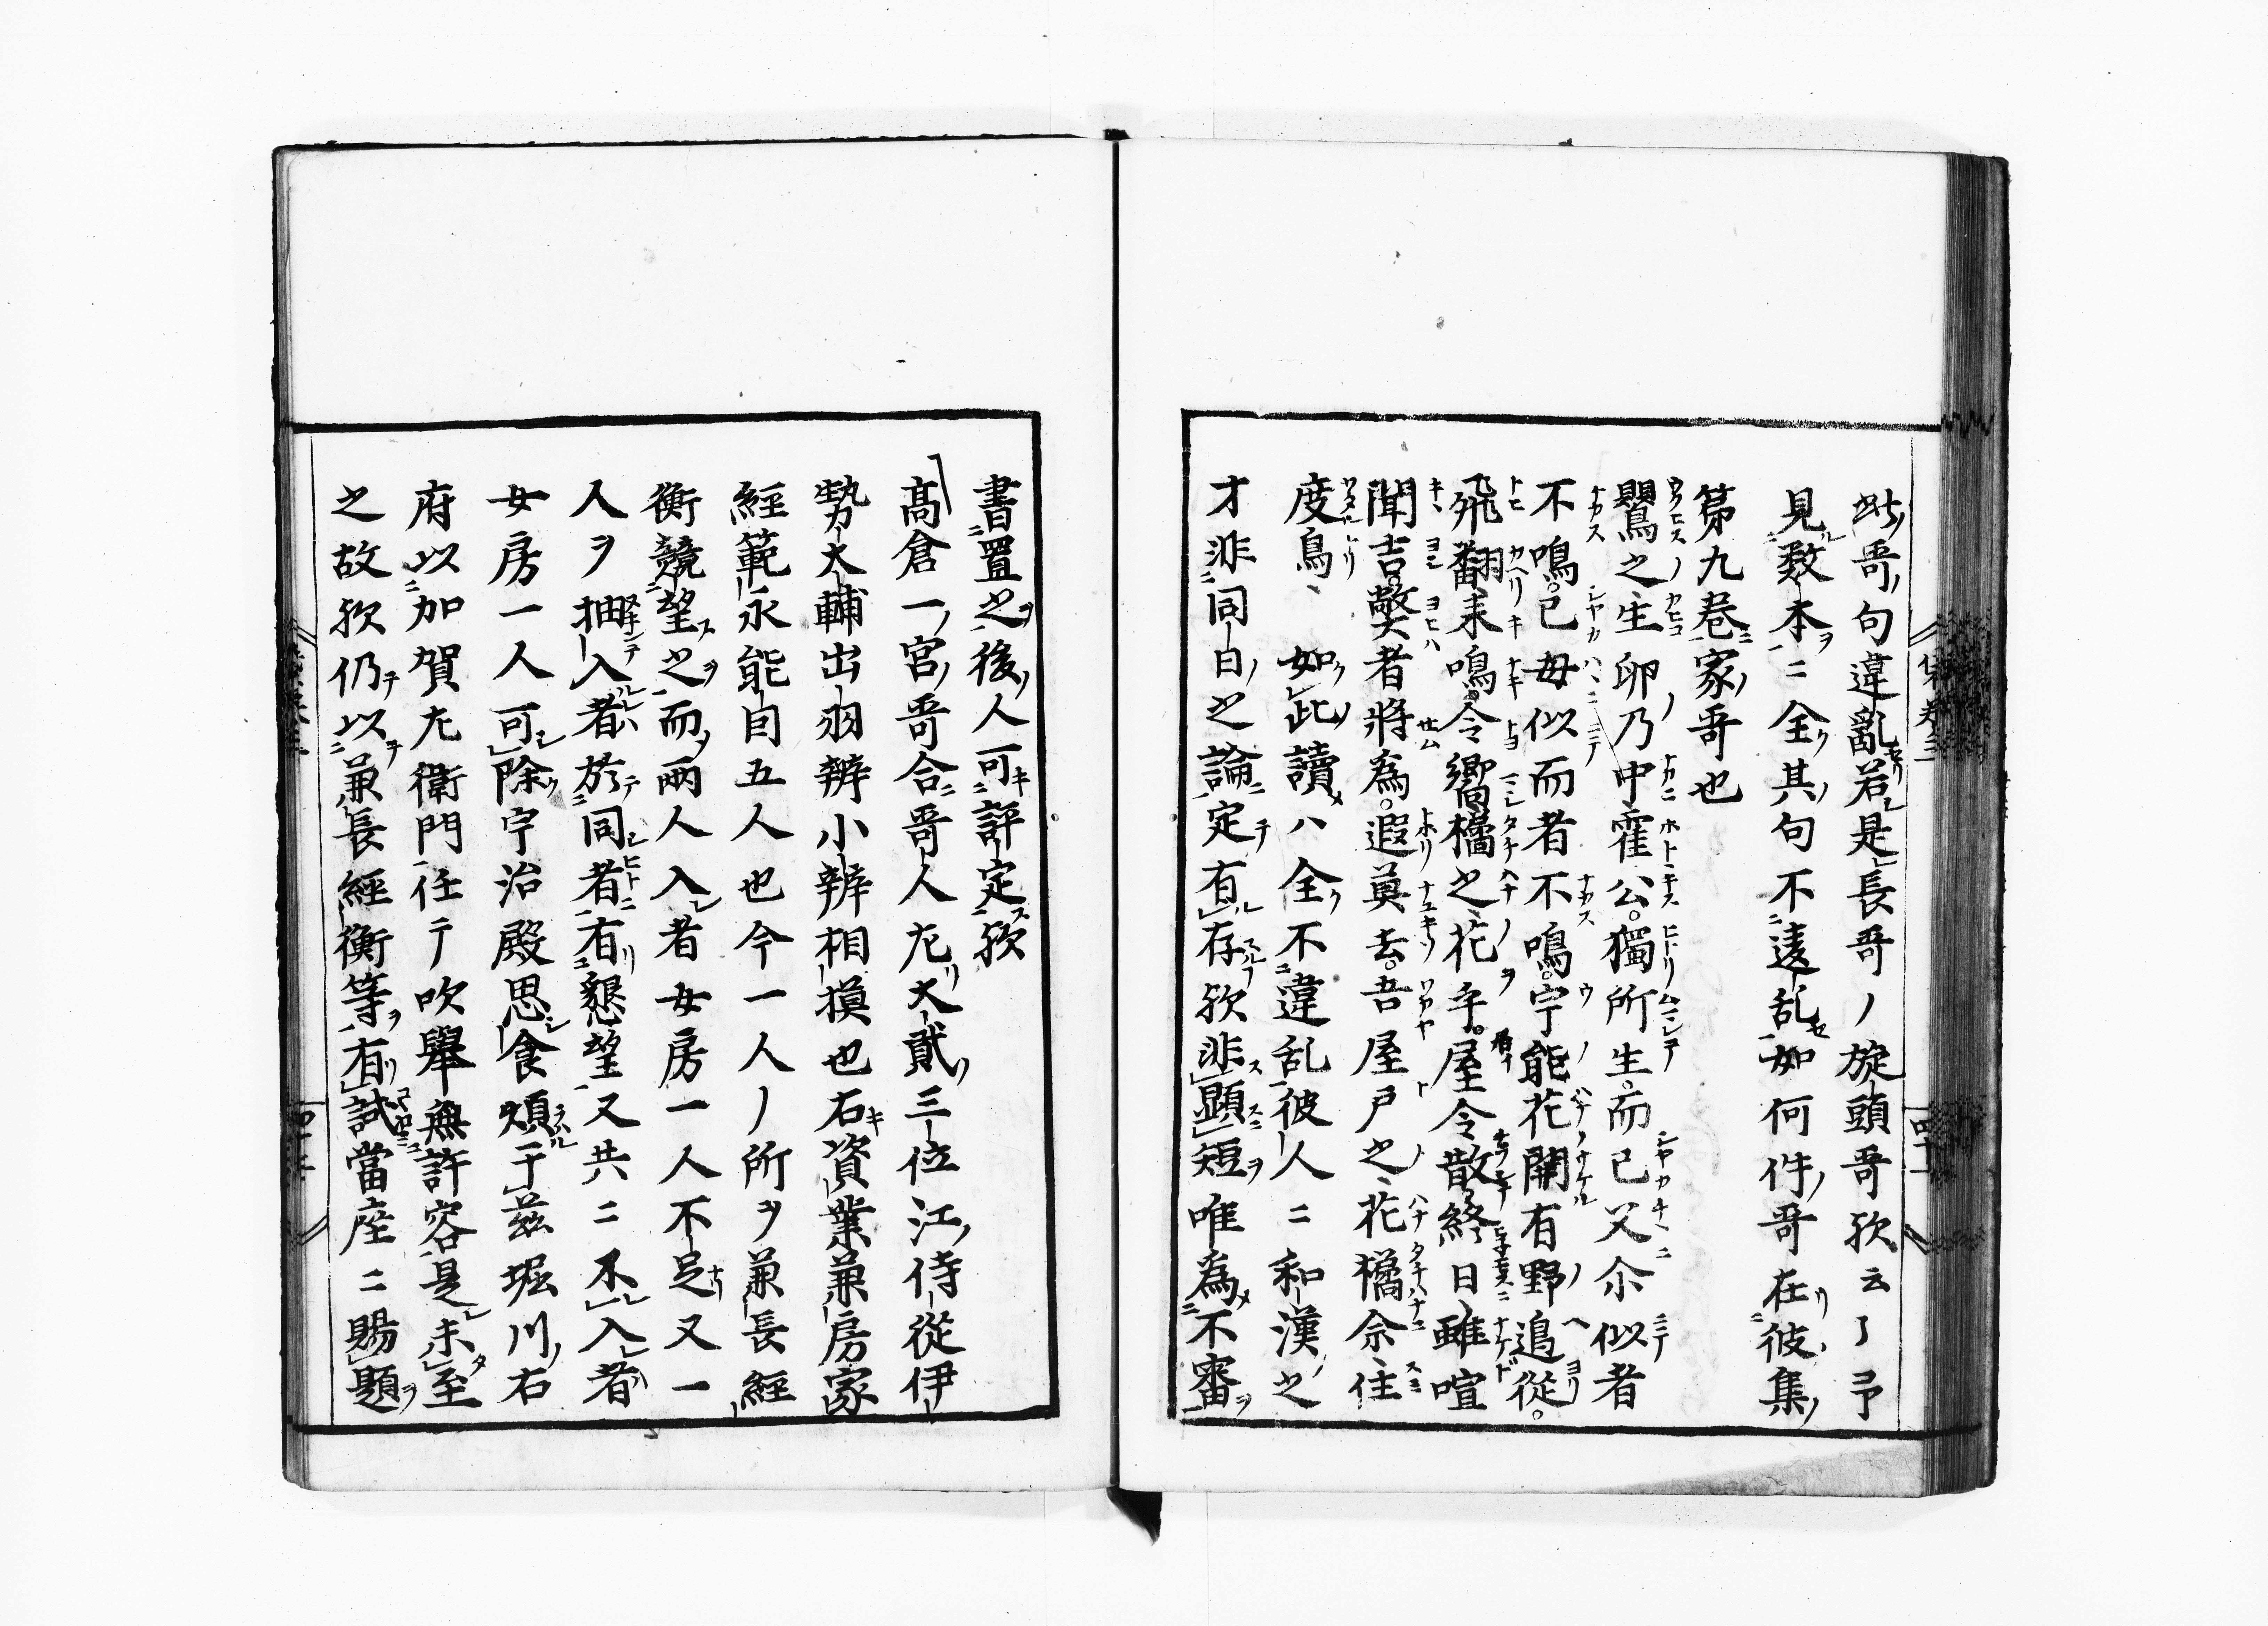 此哥句違亂若是長哥ノ旋頭哥欤云了予
見数本ニ全其句不違乱如何件哥在彼集
第九巻家哥也
鸎之生卵乃中霍公獨所生而已父尒似者
不鳴已毋似而者不鳴宇能花開有野邉從
飛翻来鳴令響橘之花乎屋令散終日雖喧
聞吉弊者將為遐莫去吾屋戸之花橘尒住
度鳥 如此讀ハ全不違乱彼人ニ和漢之
才非同日之論定有存欤非顕短唯為不審
書置之後人可評定欤
髙倉一宮哥合哥人尢大貳三位江侍従伊
勢大輔出羽辨小辨相摸也右資業兼房家
經範永能自五人也今一人ノ所ヲ兼長經
衡競望之而兩人入者女房一人不足又一
人ヲ抽入者於同者有懇望又共ニ不入者
女房一人可除宇治殿思食煩于茲堀川右
府以加賀尢衛門任ニテ吹舉無許容是未至
之故欤仍以兼長經衡等有試當座ニ賜題